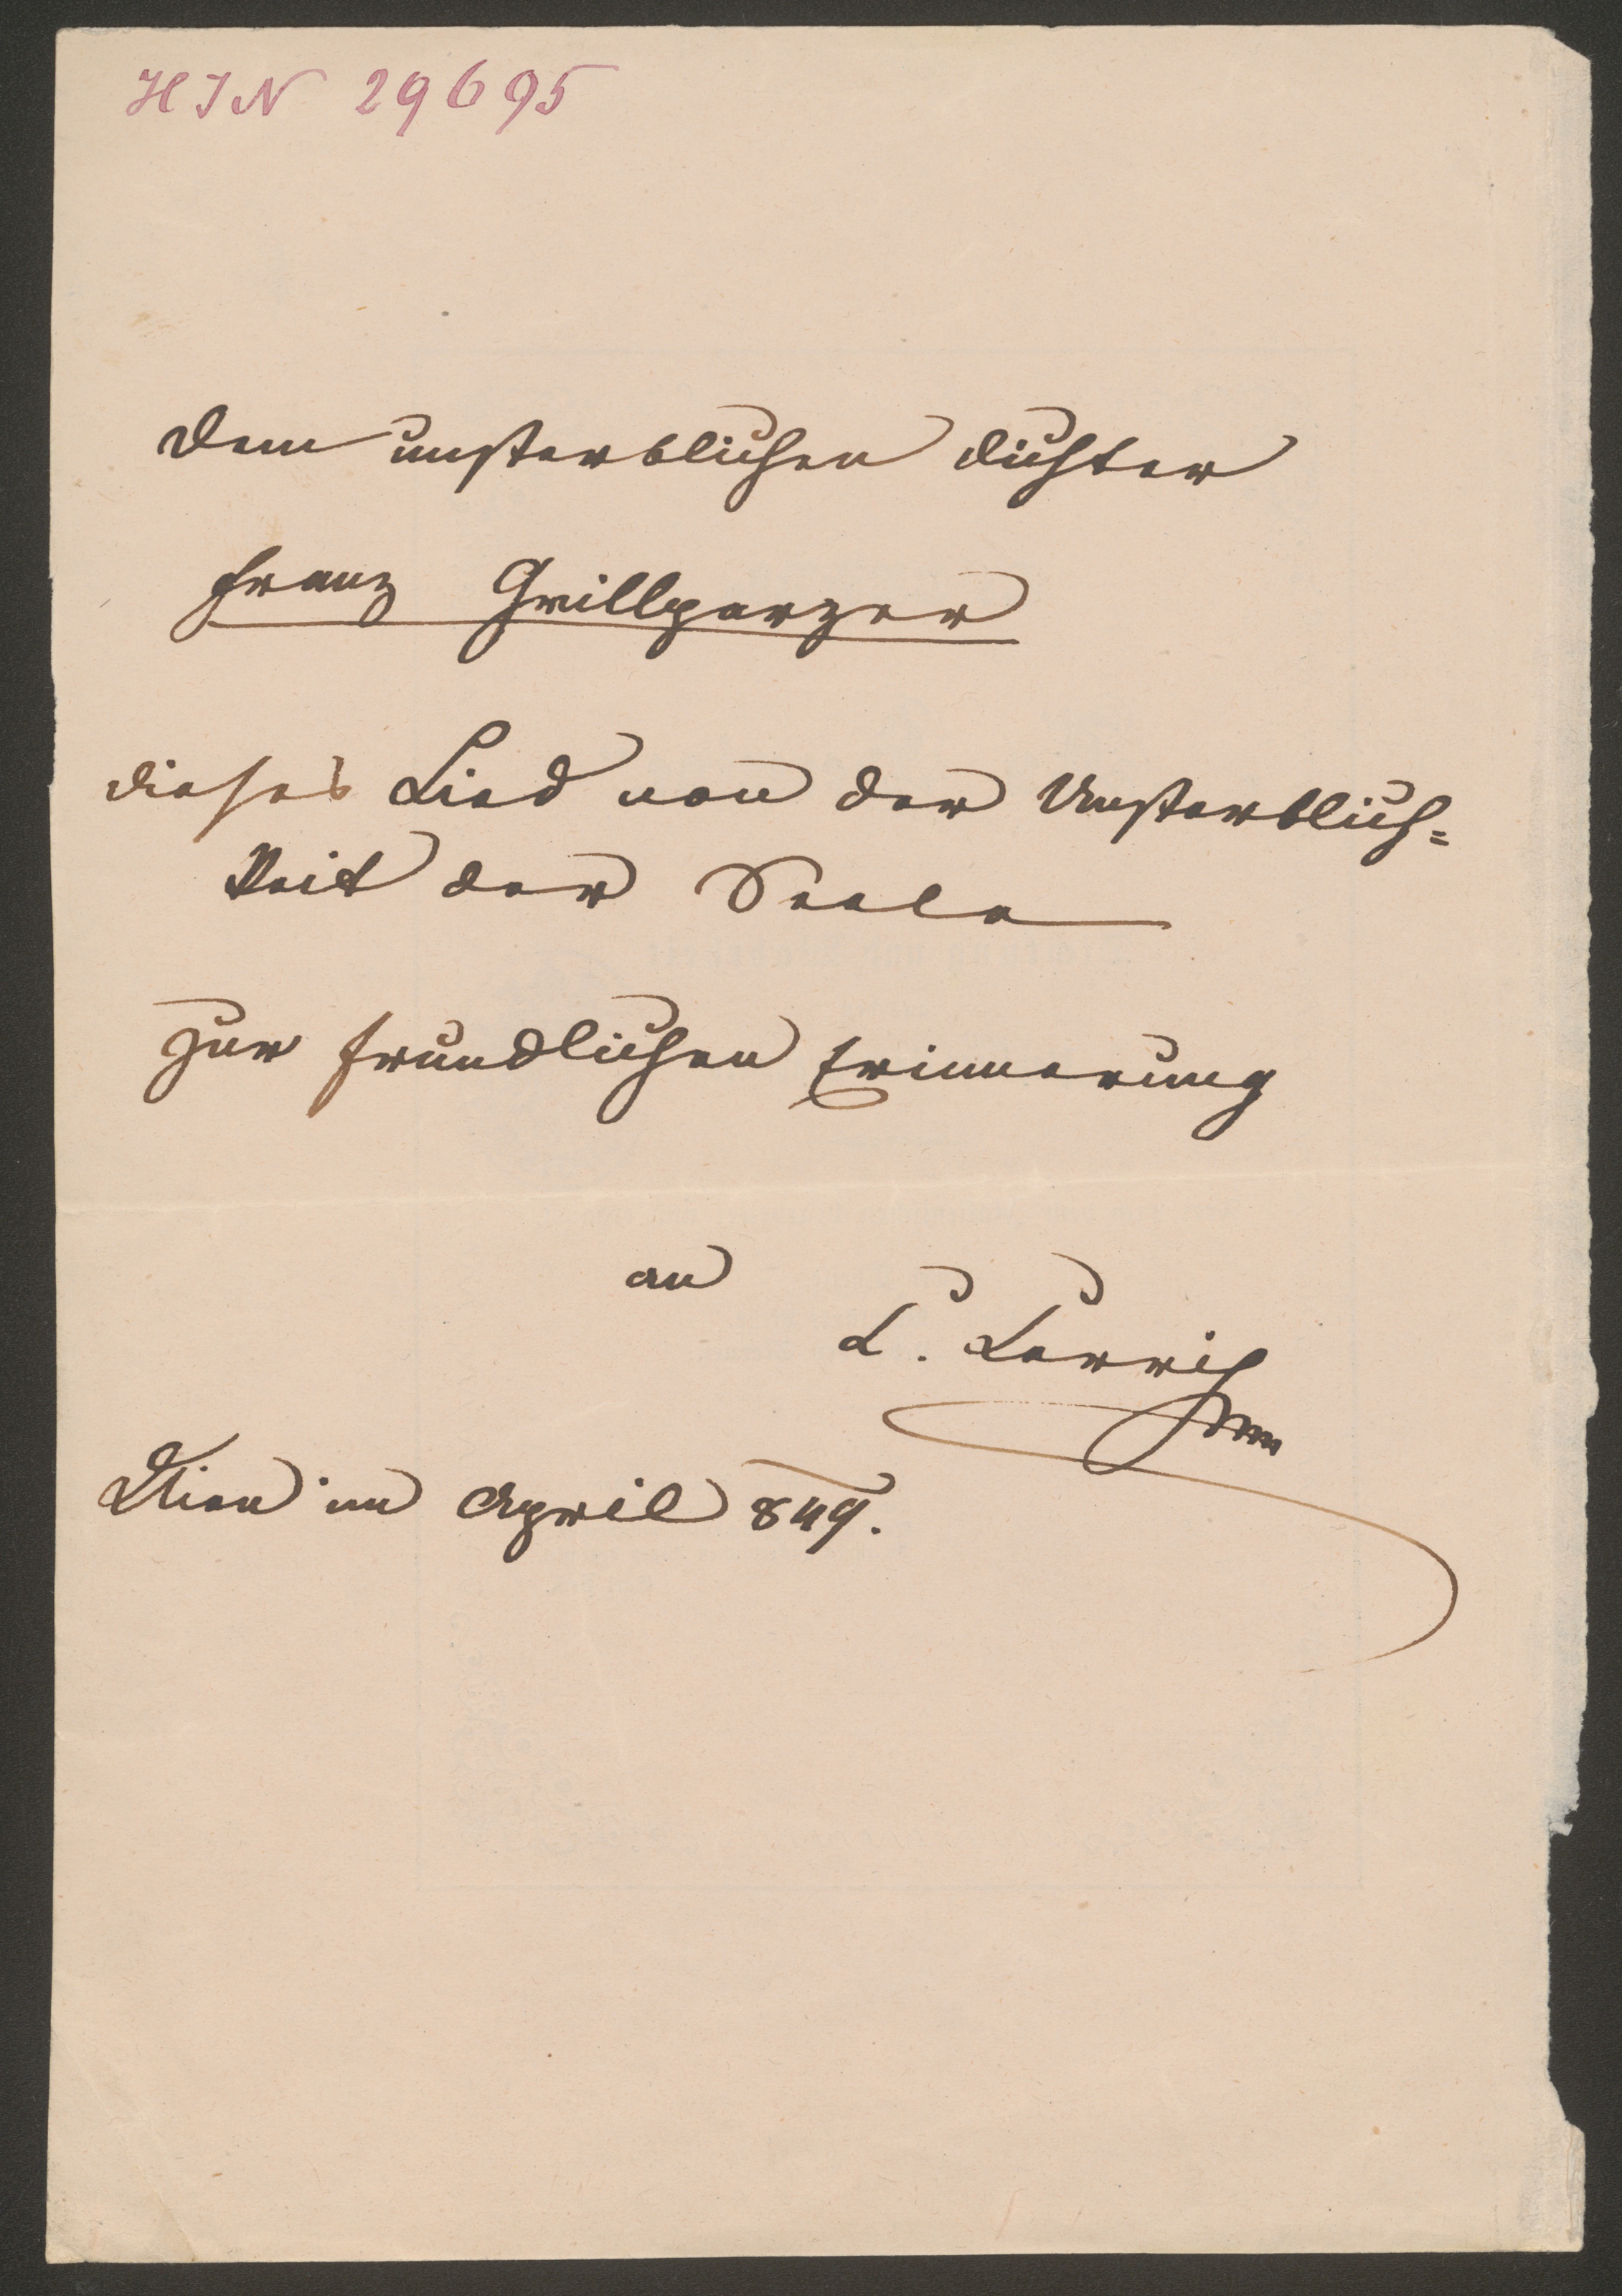 HIN 29695
Dem unsterblichen Dichter
Franz Grillparzer
dieses Lied von der Unsterblich=
keit der Seele
zur freundlichen Erinnerung
an
L.
Wien im April 849.